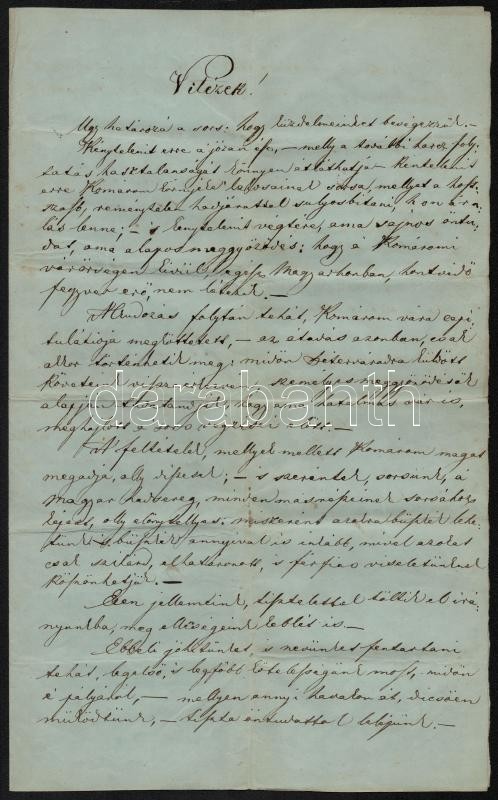 Vitézek!
Ugy határozá a sors: hogy küzdelmeinket bevégezzük. –
Kénytelenit erre a józan ész, – melly a további harcz foly-
tatás hasztalanságát könnyen átláthatja – kénytelenit
erre Komárom környéke lakosainak sorsa, mellyet a hosz-
szabb, reménytelen hadjárattal sulyosbitani, honáru-
lás lenne; – is kénytelenit végtére, ama sajnos öntu-
dat, ama alapos meggyőződés: hogy a Komáromi
várőrségen kivül, egész Magyarhonban, hontvédő
fegyver erő, nem létezik. –
Alkudozás folytán tehát, Komárom vára capi-
tulatiója megköttetett, – az átadás azonban, csak
akkor történhetik meg: midőn Péterváradra küldött
követeink visszatérvén, személyes meggyőződésök
alapján hogy ama hatalmas vár is,
meghajlott a sors végzései alatt. –
A' feltételek, mellyek mellett Komárom magát
megadja, olly diszesek, – is szerintek, sorsunk, a
Magyar hadsereg, minden más népeinek sorsához
képest, olly előnyteljes: miszerént azokra büszkék lehe-
tünk s büszkék annyival is inkább, mivel azokat
csak szilárd, elhatározott, s férfias viseletünknek
köszönhetjük. –
Ezen jellemünk, tisztelettel töltik el irá-
nyunkba, még ellenségeink keblét is. –
Ebbeli jóhirünket, is nevünket fentartani
tehát, legelső, is legfőbb kötelességünk most, midőn
e' pályáról, – mellyen annyi havakon át, dicsően
müködtünk, – tiszta öntudattal lelépünk. –
darabanth